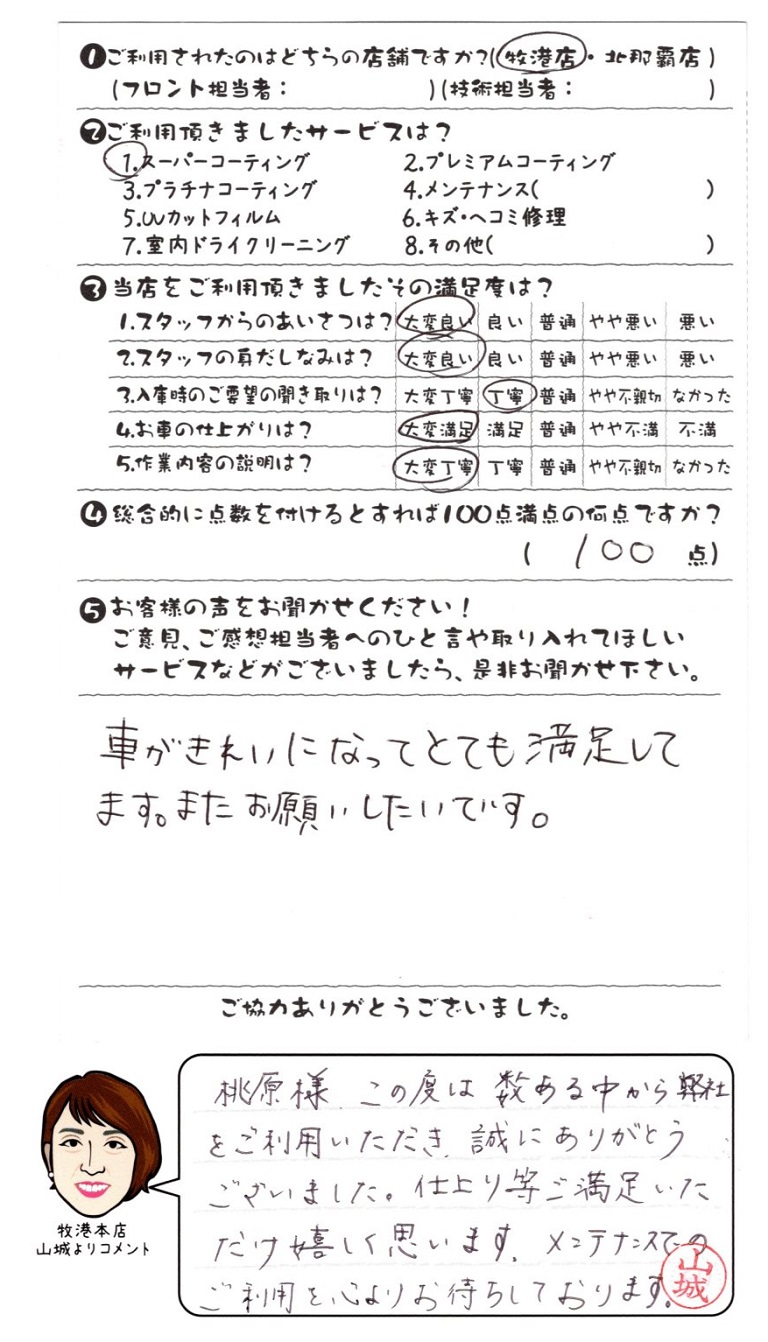 ❶ご利用されたのはどちらの店舗ですか?(牧港店・北那覇店)
(フロント担当者: )(技術担当者: )
❷ご利用頂きましたサービスは?
1.スーパーコーティング 2.プレミアムコーティング
3.プラチナコーティング 4.メンテナンス( )
5.UVカットフィルム 6.キズ・ヘコミ修理
7.室内ドライクリーニング 8.その他( )
❸当店をご利用頂きましたその満足度は?
1.スタッフからのあいさつは? 大変良い 良い 普通 やや悪い 悪い
2.スタッフの身だしなみは? 大変良い 良い 普通 やや悪い 悪い
3.入庫時のご要望の聞き取りは? 大変丁寧 丁寧 普通 やや不親切 なかった
4.お車の仕上がりは? 大変満足 満足 普通 やや不満 不満
5.作業内容の説明は? 大変丁寧 丁寧 普通 やや不親切 なかった
❹総合的に点数を付けるとすれば100点満点の何点ですか?
( 100 点)
❺お客様の声をお聞かせください!
ご意見、ご感想担当者へのひと言や取り入れてほしい
サービスなどがございましたら、是非お聞かせ下さい。
車がきれいになってとても満足して
ます。またお願いしたいです。
ご協力ありがとうございました。
桃原様 この度は数ある中から弊社
をご利用いただき 誠にありがとう
ございました。仕上り等ご満足いた
だけ嬉しく思います。メンテナンスでの
ご利用を心よりお待ちしております。
山城
牧港本店
山城よりコメント